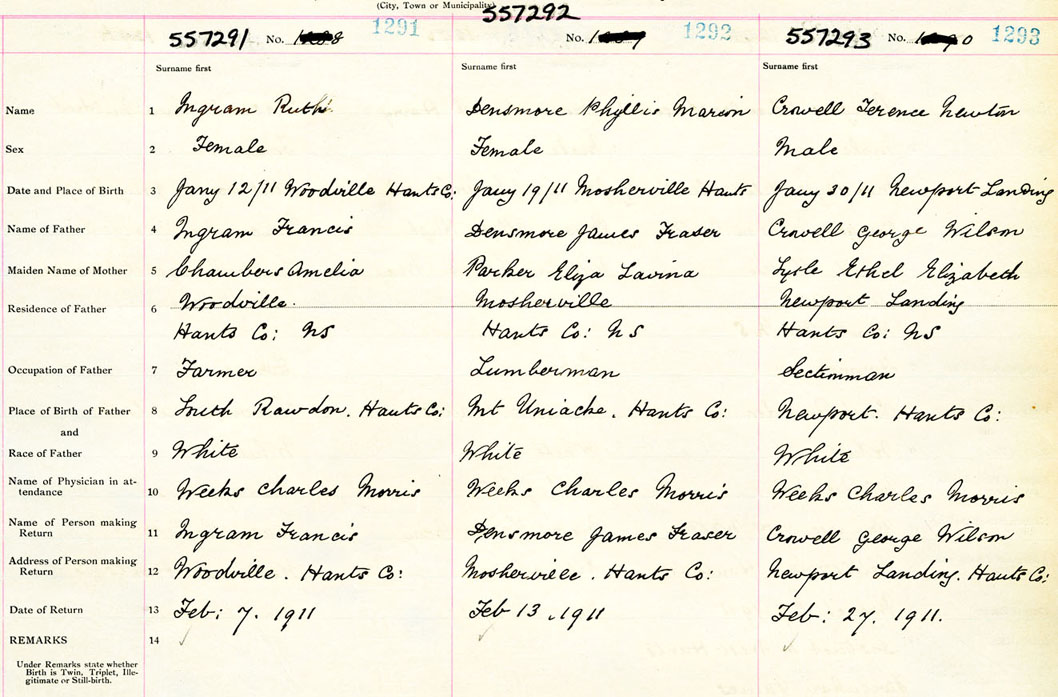 (City, Town or Municipality)
557291 No. 1291
557292 No. 1292
557293 No. 1293
Surname first Surname first Surname first
Name 1 Ingram Ruth Densmore Phyllis Marion Crowell Terence Newton
Sex 2 Female Female Male
Date and Place of Birth 3 Jany 12/11 Woodville Hants Co: Jany 19/11 Mosherville Hants Jany 30/11 Newport Landing
Name of Father 4 Ingram Francis Densmore James Fraser Crowell George Wilson
Maiden Name of Mother 5 Chambers Amelia Parker Eliza Lavina Lysle Ethel Elizabeth
Residence of Father 6 Woodville. Mosherville Newport Landing
Hants Co: NS Hants Co: NS Hants Co: NS
Occupation of Father 7 Farmer Lumberman Sectionman
Place of Birth of Father 8 South Rawdon. Hants Co: Mt Uniacke. Hants Co: Newport. Hants Co:
and
Race of Father 9 White White White
Name of Physician in at-
tendance 10 Weeks Charles Morris Weeks Charles Morris Weeks Charles Morris
Name of Person making
Return 11 Ingram Francis Densmore James Fraser Crowell George Wilson
Address of Person making
Return 12 Woodville. Hants Co: Mosherville. Hants Co: Newport Landing. Hants Co:
Date of Return 13 Feb: 7. 1911 Feb 13. 1911 Feb: 27. 1911.
REMARKS 14
Under Remarks state whether
Birth is Twin, Triplet, Ille-
gitimate or Still-birth.